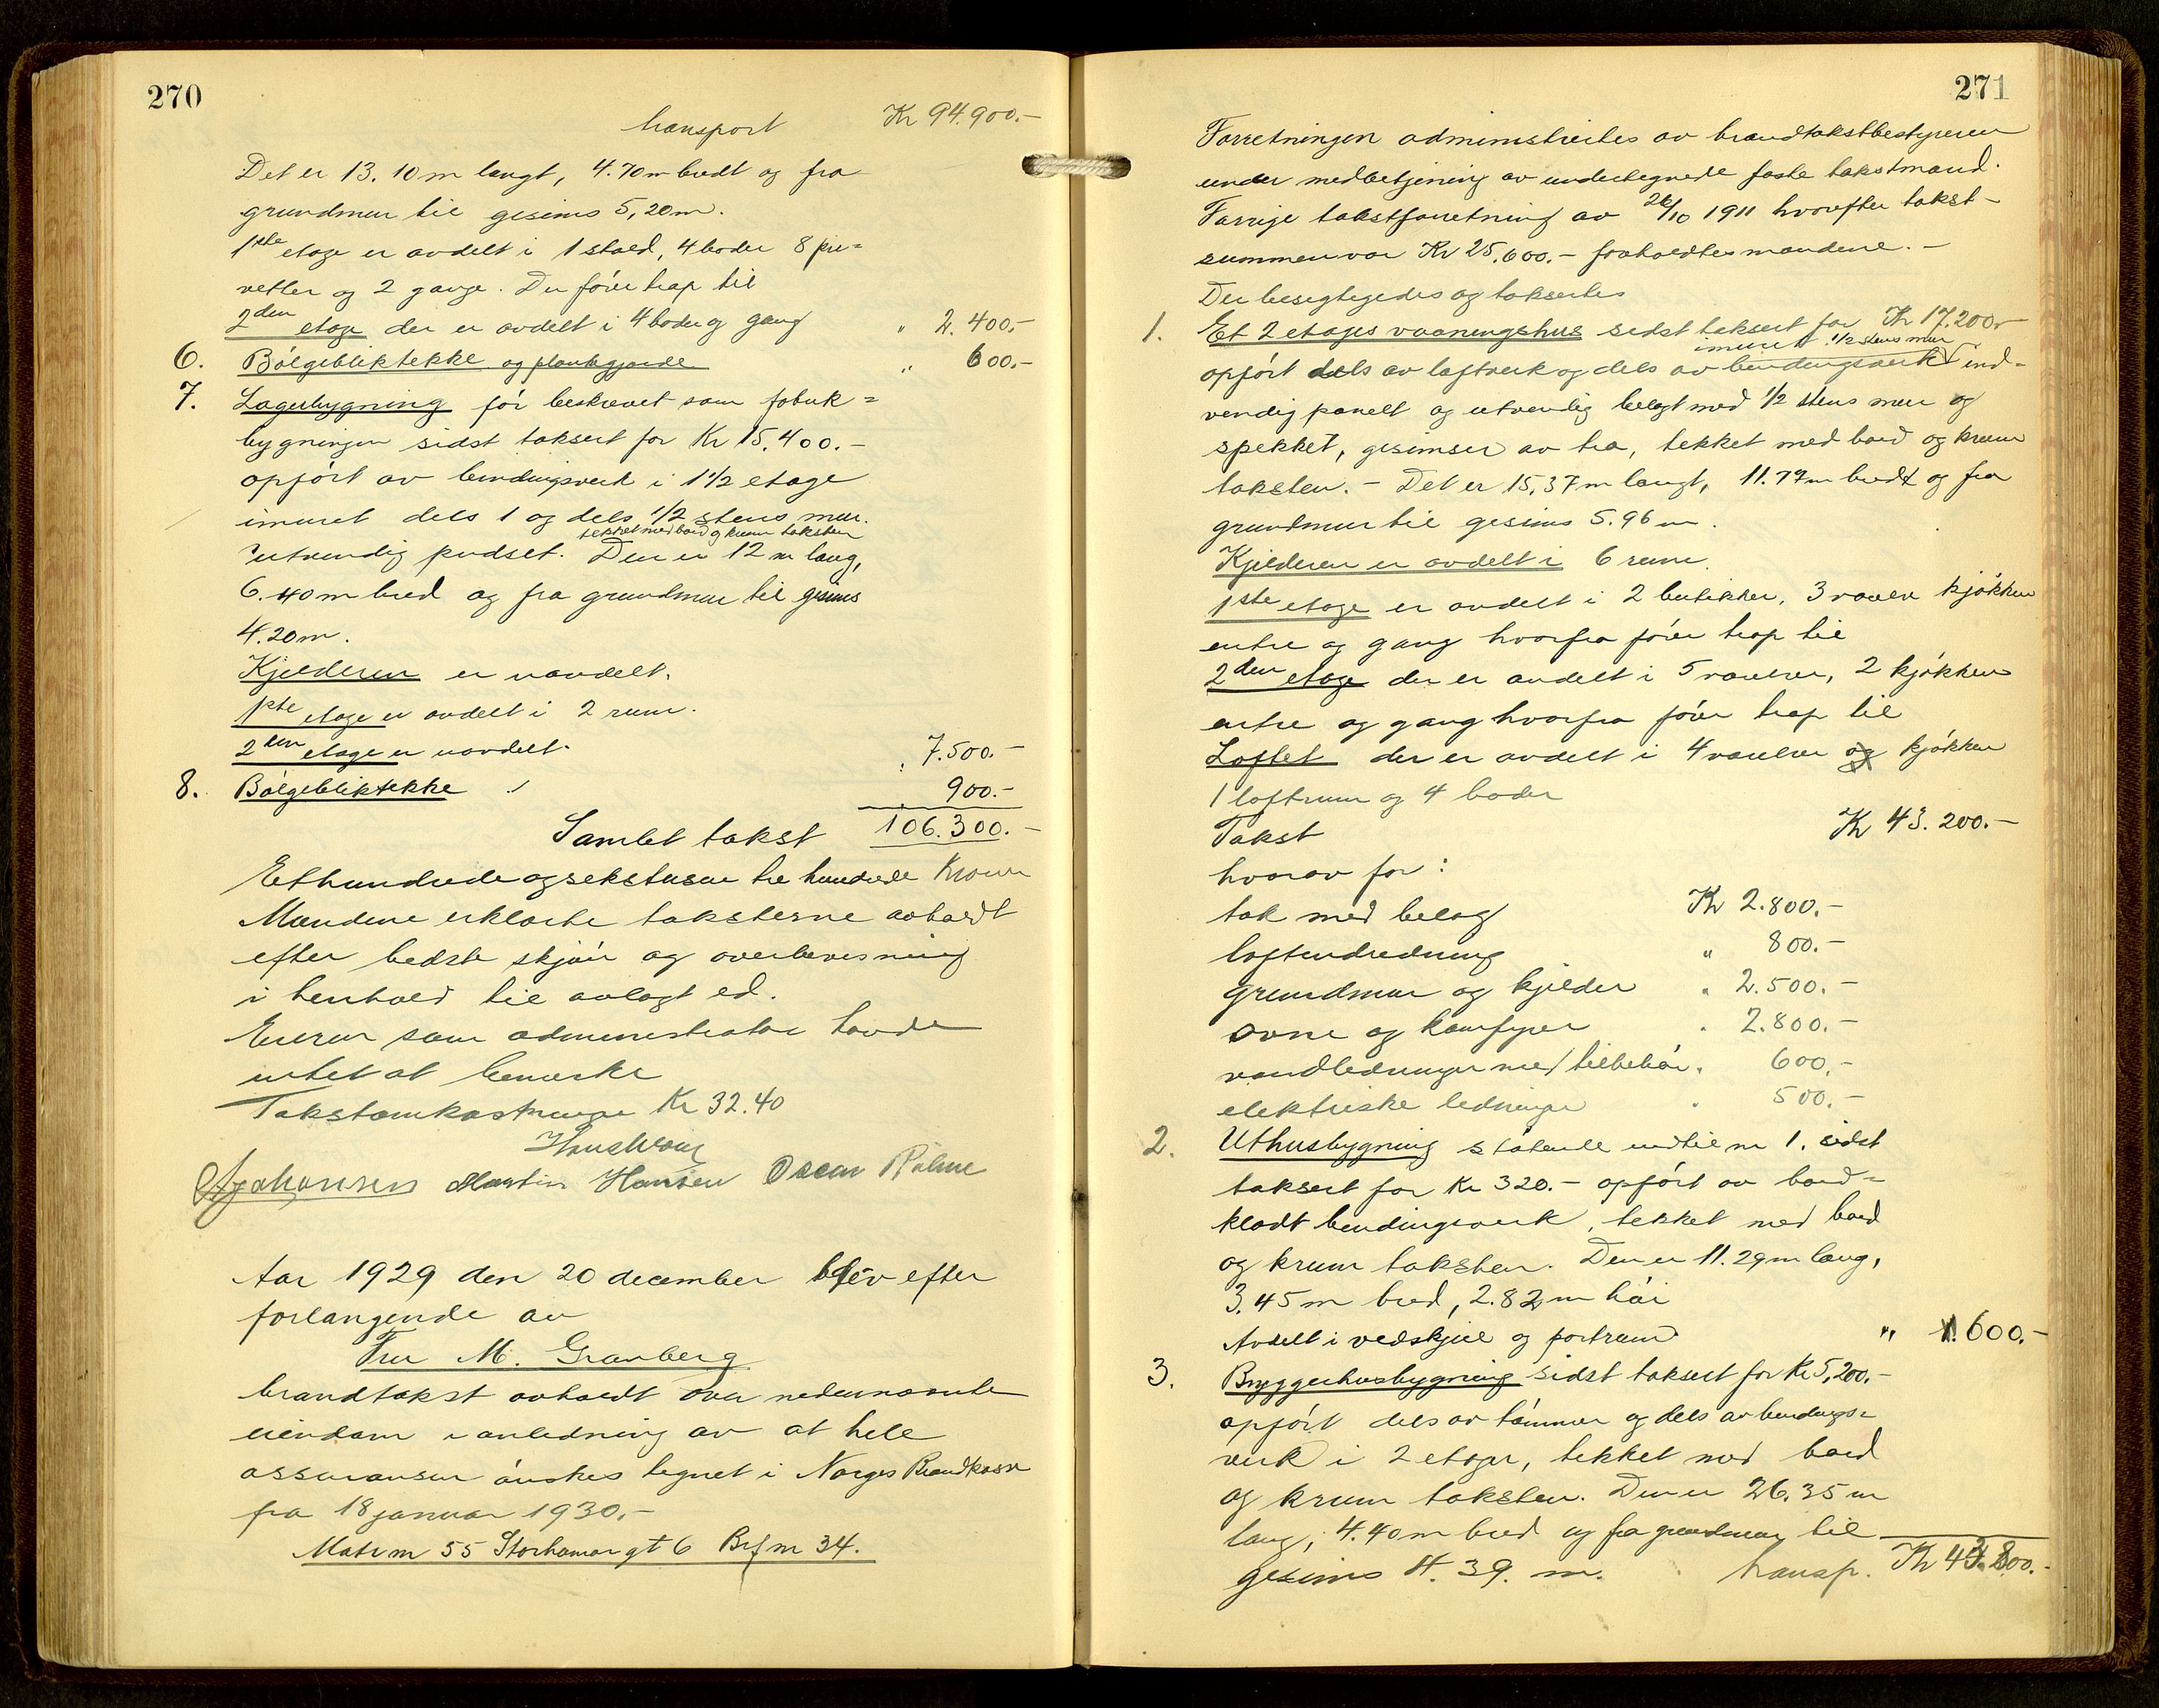 270
transport Kr 94.900.-
Det er 13.10 m langt, 4.70 m bredt og fra
grundmur til gesims 5,20 m.
1ste etage er avdelt i 1 stald, 4 boder 8 pri-
vetter og 2 gange. Der fører trap til
2den etage der er avdelt i 4 boder og gang " 2.400.-
6. Bølgebliktekke og plankegjærde " 600.-
7. Lagerbygning før beskrevet som fabrik=
bygningen sidst taksert for Kr 15.400.-
opført av bindingsverk i 1 1/2 etage
imuret dels 1 og dels 1/2 stens mur.
tekket med bord og krum taksten
utvendig pudset. Den er 12 m lang,
6.40 m bred og fra grundmur til gesims
4.20 m.
Kjelderen er uavdelt.
1ste etage er avdelt i 2 rum.
2den etage er uavdelt. " 7.500.-
8. Bølgebliktekke 900.-
Samlet takst 106.300.-
Ethundrede og sekstusen tre hundrede Kroner
Mændene erklærte taksterne avholdt
efter bedste skjøn og overbevisning
i henhold til avlagt ed.
Eieren som administrator havde
intet at bemerke
Takstomkostninger Kr 32.40
Hans
A Johansen Martin Hansen Oscar
Aar 1929 den 20 december blev efter
forlangende av
Fru M. Granberg
brandtakst avholdt over nedennævnte
eiendom i anledning av at hele
assuransen ønskes tegnet i Norges Brandkasse
fra 18 januar 1930.-
Matr nr 55 Storhamargt 6 Brf nr 34.
271
Forretningen administrertes av brandtakstbestyreren
under medbetjening av undertegnede faste takstmænd.
Forrige takstforretning av 26/10 1911 hvorefter takst-
summen var Kr 25.600.- foreholdtes mændene.-
Der besigtigedes og taksertes
1. Et 2 etages vaaningshus sidst taksert for Kr 17.200.-
imuret 1/2 stens mur
opført dels av laftverk og dels av bindingsverk ind-
vendig panelt og utvendig belagt med 1/2 stens mur og
spekket, gesimser av træ, tekket med bord og krum
taksten.- Det er 15,37 m langt, 11.77 m bredt og fra
grundmur til gesims 5.96 m.
Kjelderen er avdelt i 6 rum.
1ste etage er avdelt i 2 butikker, 3 værelser kjøkken
entre og gang hvorfra fører trap til
2den etage der er avdelt i 5 værelser, 2 kjøkken
entre og gang hvorfra fører trap til
Loftet der er avdelt i 4 værelser og kjøkken
1 loftrum og 4 boder
Takst Kr 43.200.-
hvorav for:
tak med belæg Kr 2.800.-
loftindredning " 800.-
grundmur og kjelder " 2.500.-
ovne og komfyrer " 2.800.-
vandledninger med tilbehør " 600.-
elektriske ledninger " 500.-
2. Uthusbygning støtende indtil nr 1. sidst
taksert for Kr 320.- opført av bord=
klædt bindingsverk, tekket med bord
og krum taksten. Den er 11.29 m lang,
3.45 m bred, 2.82 m høi
Avdelt i vedskjul og portrum " 600.-
3. Bryggerhusbygning sidst taksert for Kr 5,200.-
opført dels av tømmer og dels av bindings=
verk i 2 etager, tekket med bord
og krum taksten. Den er 26.35 m
lang, 4.40 m bred og fra grundmur til
gesims 4.39. m. transp. Kr 43.800.-